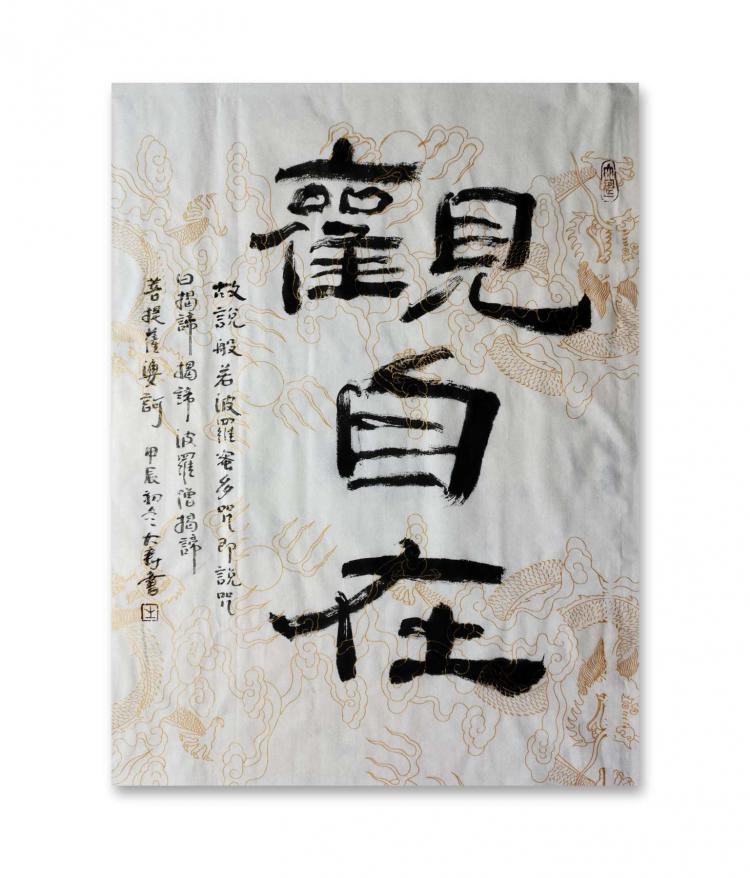 觀自在
故說般若波羅蜜多呪即說呪
曰揭諦揭諦波羅僧揭諦
菩提薩婆訶 甲辰初冬大寿書